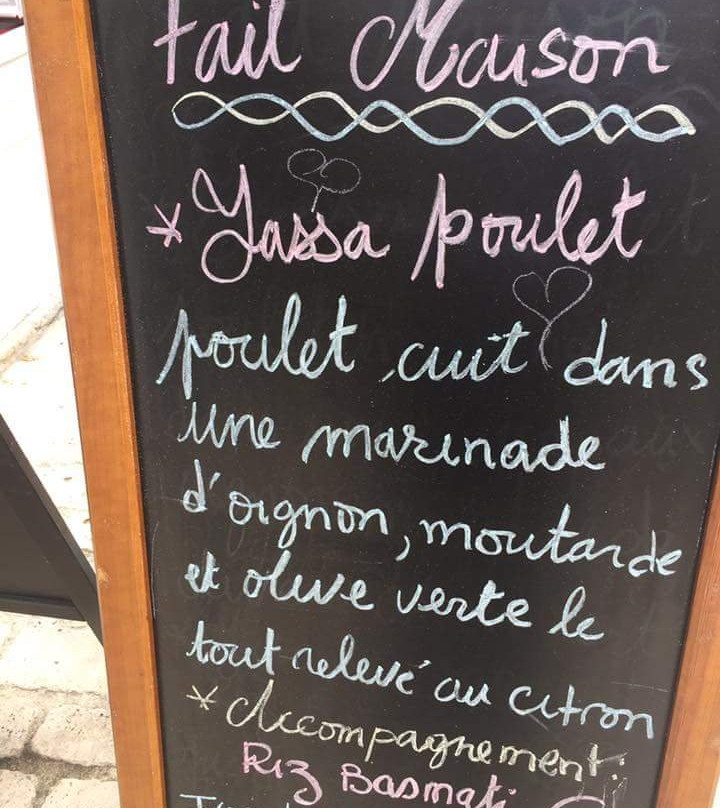 Fait Maison
* Yassa poulet
poulet cuit dans
une marinade
d'oignon, moutarde
et olive verte le
tout relevé au citron
* Accompagnement:
Riz Basmati